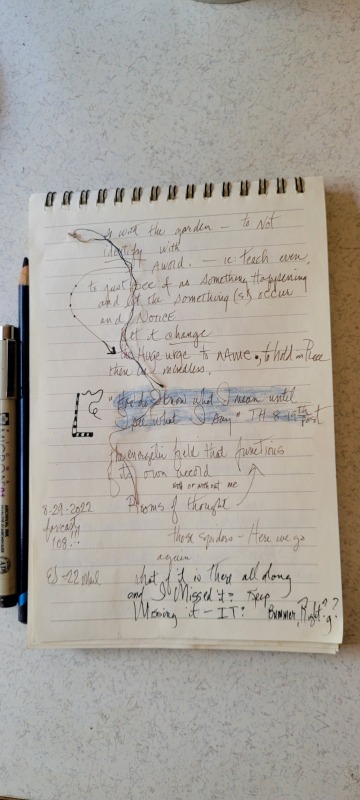 with the garden — to Not
identify with
A word. — ie: teach even,
to just see it as something happening
and let the something(s) occur
and NOTICE
let it change
the Huge urge to NAME, to hold in Place
then
know what I mean until
I see what I say"
energetic field that functions
its own accord
with or without me
Rooms of thought
8-29-2022
forecast
108.!!
those spiders - Here we go
again
what if it is there all along
and I Missed it? Keep
Missing it - IT? Bummer, Right?